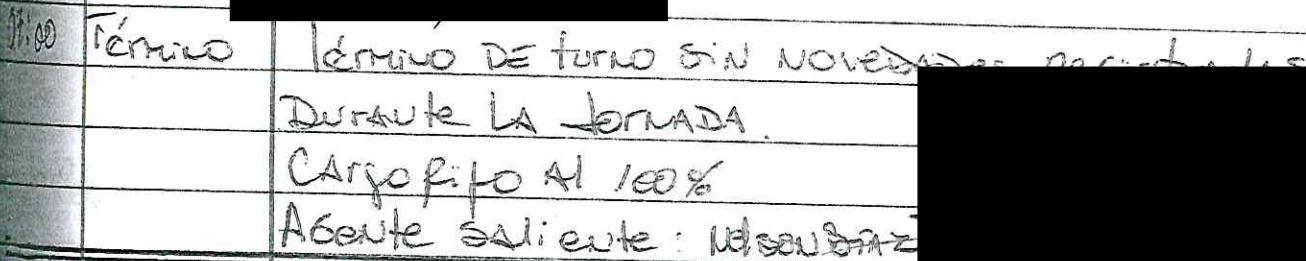 Término Término DE turno SiN NOVEDADES registradas
DurANte LA JorNADA.
CArgo fijo Al 100%
AGeNte SAlieNte: NelsoN DíAz